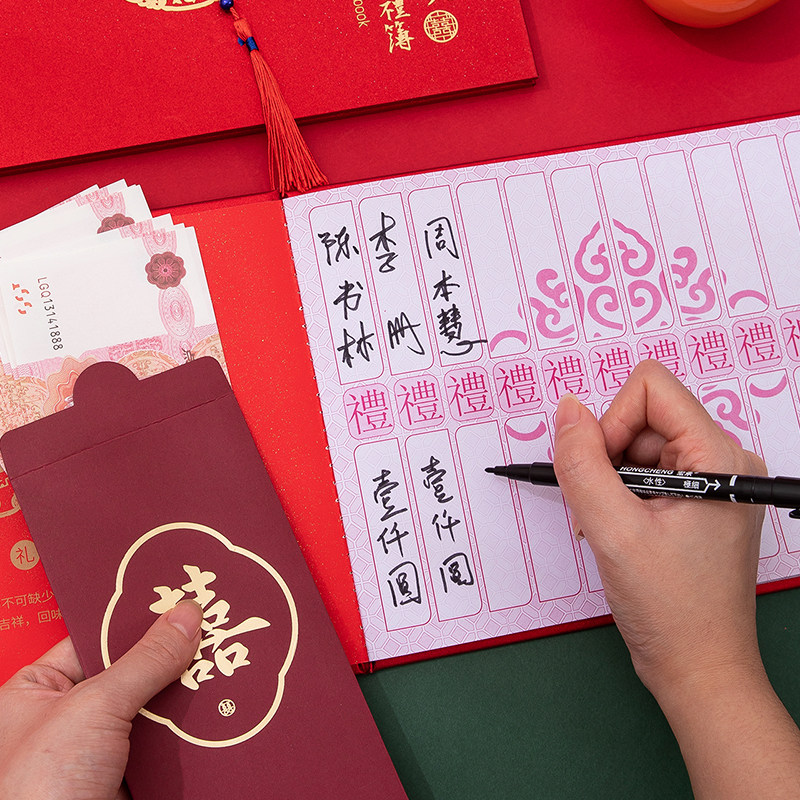 ook
禮簿
囍
LGQ13141888
陈书林
李彤
周本慧
禮 禮 禮 禮 禮 禮 禮 禮 禮 禮
壹仟圆
壹仟圆
HONGCHENG
〈水性〉 極細
礼
不可缺少
吉祥，回味
囍